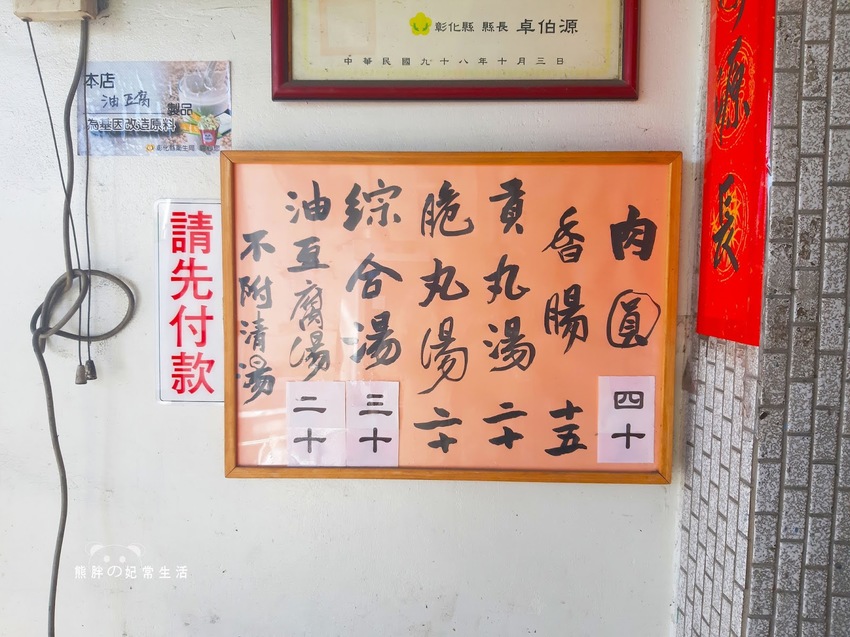 彰化縣 縣長 卓伯源
中華民國九十八年十月三日
本店
油豆腐
製品
為基因改造原料
請先付款
肉圓 四十
香腸 十五
貢丸湯 二十
脆丸湯 二十
綜合湯 三十
油豆腐湯 二十
不附清湯
源
長
熊胖の妃常生活